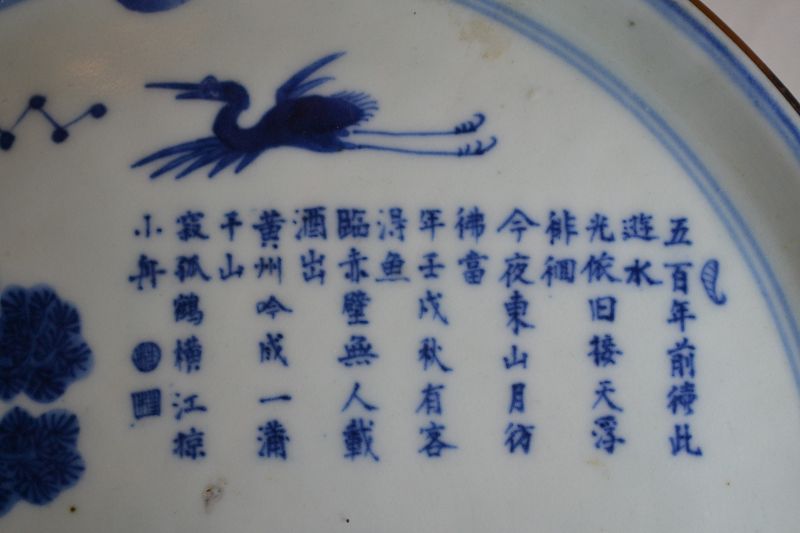 五百年前續此
遊水
光依旧接天浮
徘徊
今夜東山月彷
彿當
年壬戌秋有客
得魚
臨赤壁無人載
酒出
黄州吟成一蒲
千山
寂孤鶴横江掠
小舟